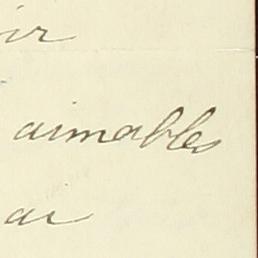 ir
aimables
au